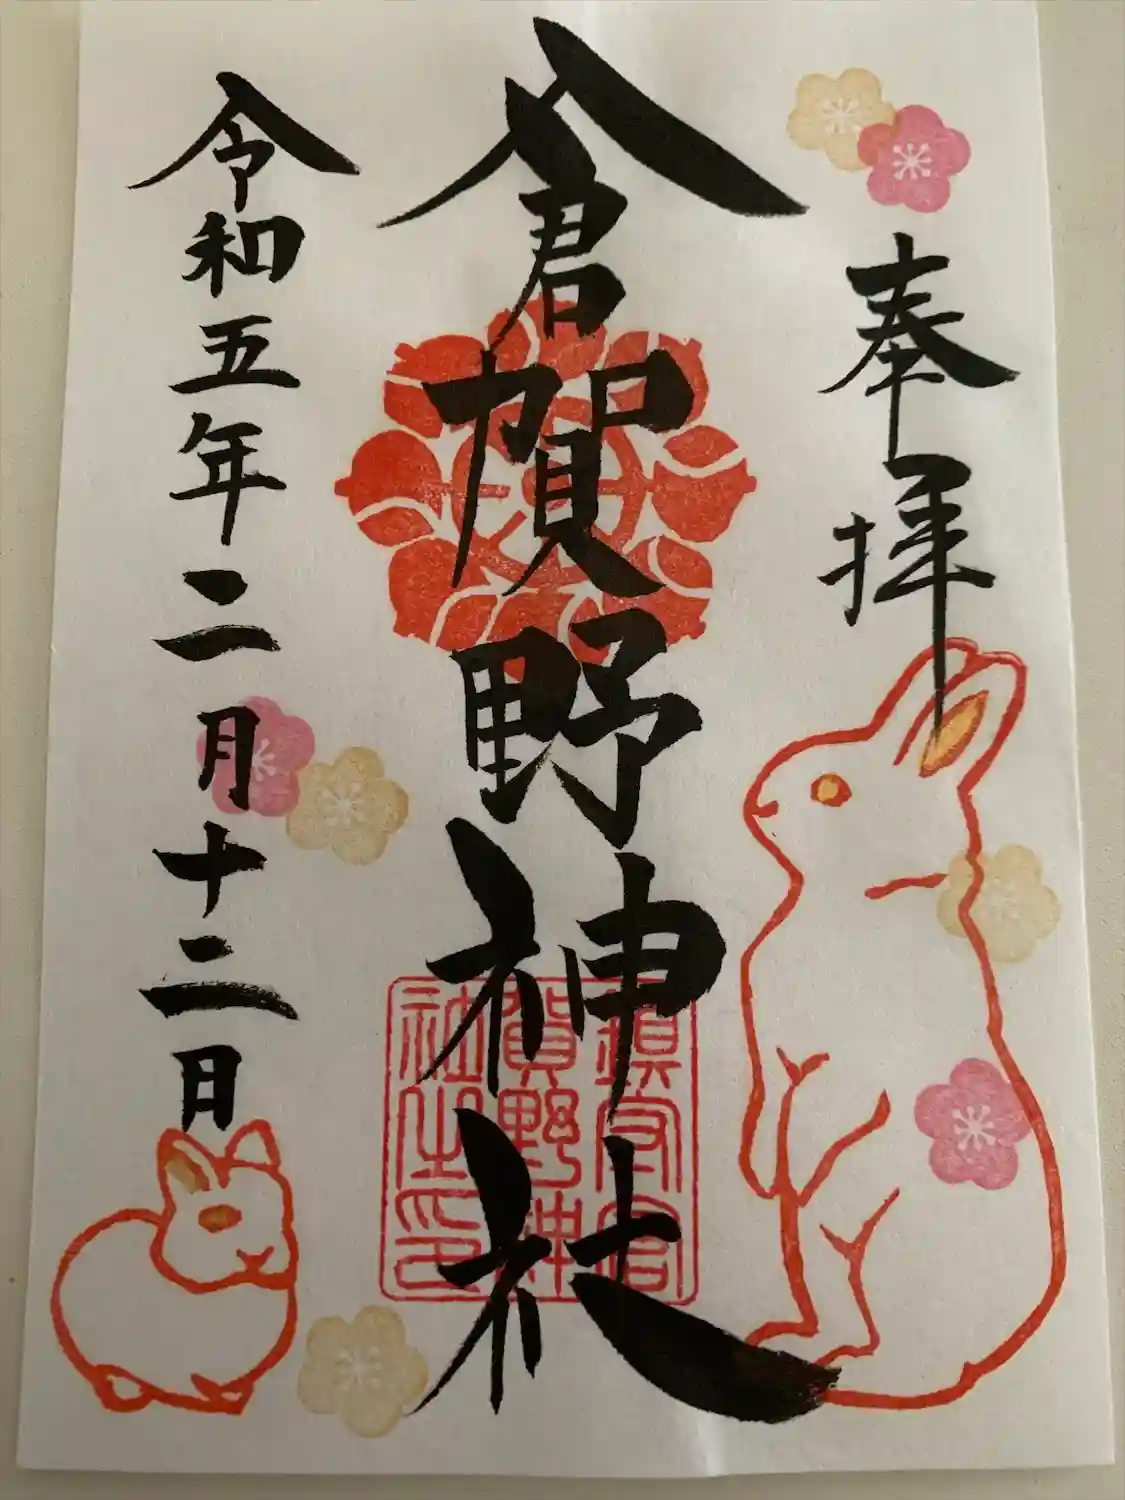 奉拝
倉賀野神社
鎮守倉
賀野神
社之印
令和五年二月十二日